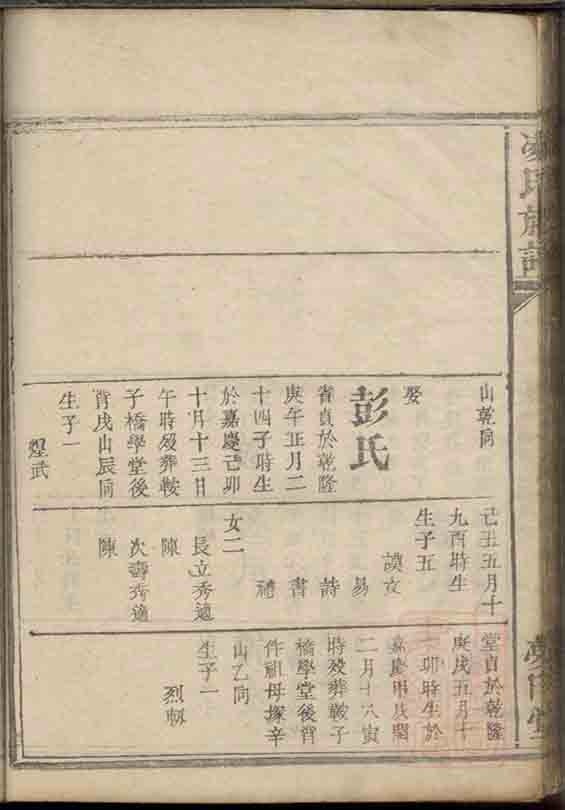 氏族
山乾向
娶
彭氏
省貞於乾隆
庚午正月二
十四子時生
於嘉慶己卯
十月十三日
午時歿葬鞍
子橋學堂後
背戌山辰向
生子一
己丑五月十
九酉時生
生子五
謨文
易
詩
書
禮
女二
長立秀適
陳
次壽秀適
陳
堂貞於乾隆
庚戌五月十
卯時生於
嘉慶
二月十八寅
時歿葬鞍子
橋學堂後背
作祖母塚辛
山乙向
生子一
烈
堂